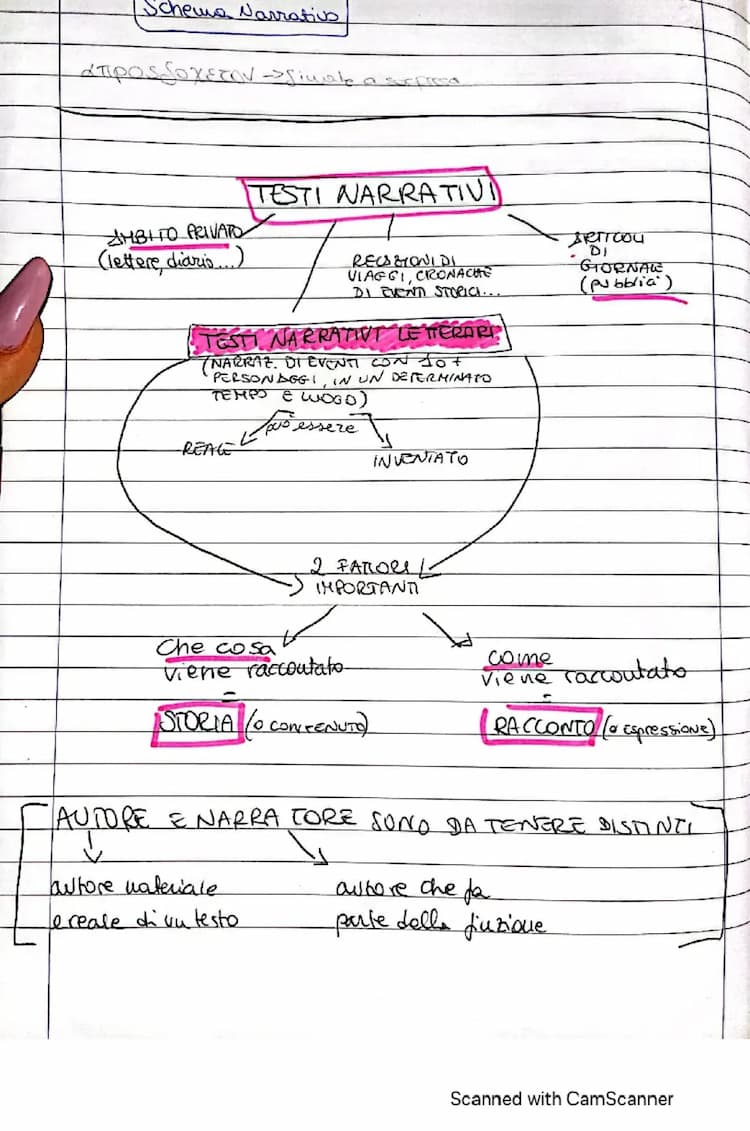 Schema Narrativo
ἀπροσδόκετον → finale a sorpresa
TESTI NARRATIVI
AMBITO PRIVATO
(lettere, diario...)
RELAZIONI DI
VIAGGI, CRONACHE
DI EVENTI STORICI...
ARTICOLI
DI
GIORNALE
(pubblici)
TESTI NARRATIVI LETTERARI
(NARRAZ. DI EVENTI CON 1 O +
PERSONAGGI, IN UN DETERMINATO
TEMPO E LUOGO)
può essere
REALE
INVENTATO
2 FATTORI
IMPORTANTI
Che cosa
viene raccontato
=
STORIA (o CONTENUTO)
come
viene raccontato
=
RACCONTO (o espressione)
AUTORE E NARRATORE SONO DA TENERE DISTINTI
autore materiale
e reale di un testo
autore che fa
parte della finzione
Scanned with CamScanner